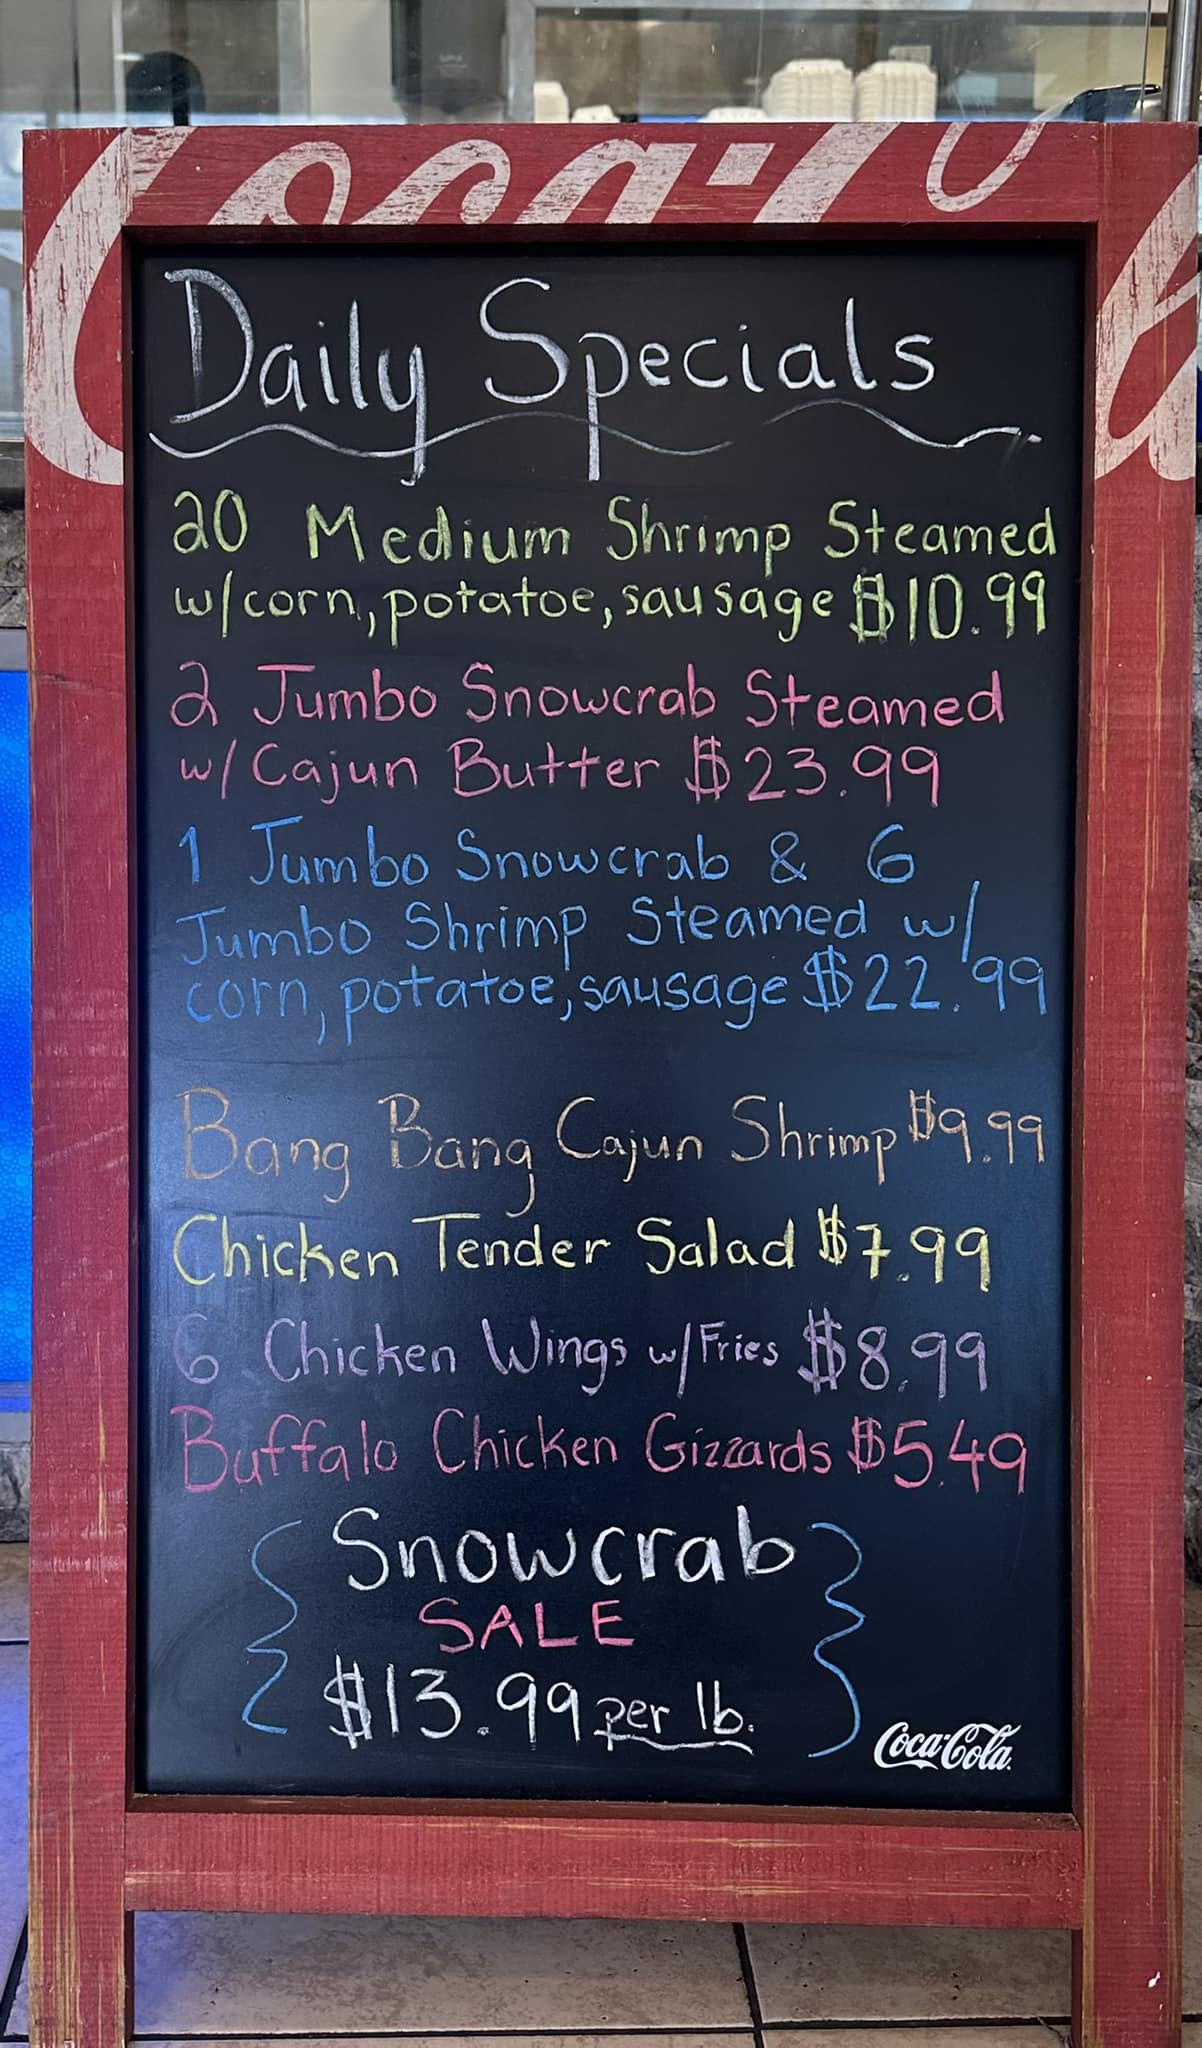 Coca-Co
Daily Specials
20 Medium Shrimp Steamed
w/corn, potatoe, sausage $10.99
2 Jumbo Snowcrab Steamed
w/ Cajun Butter $23.99
1 Jumbo Snowcrab & 6
Jumbo Shrimp Steamed w/
corn, potatoe, sausage $22.99
Bang Bang Cajun Shrimp $9.99
Chicken Tender Salad $7.99
6 Chicken Wings w/Fries $8.99
Buffalo Chicken Gizzards $5.49
Snowcrab
SALE
$13.99 per lb.
Coca-Cola